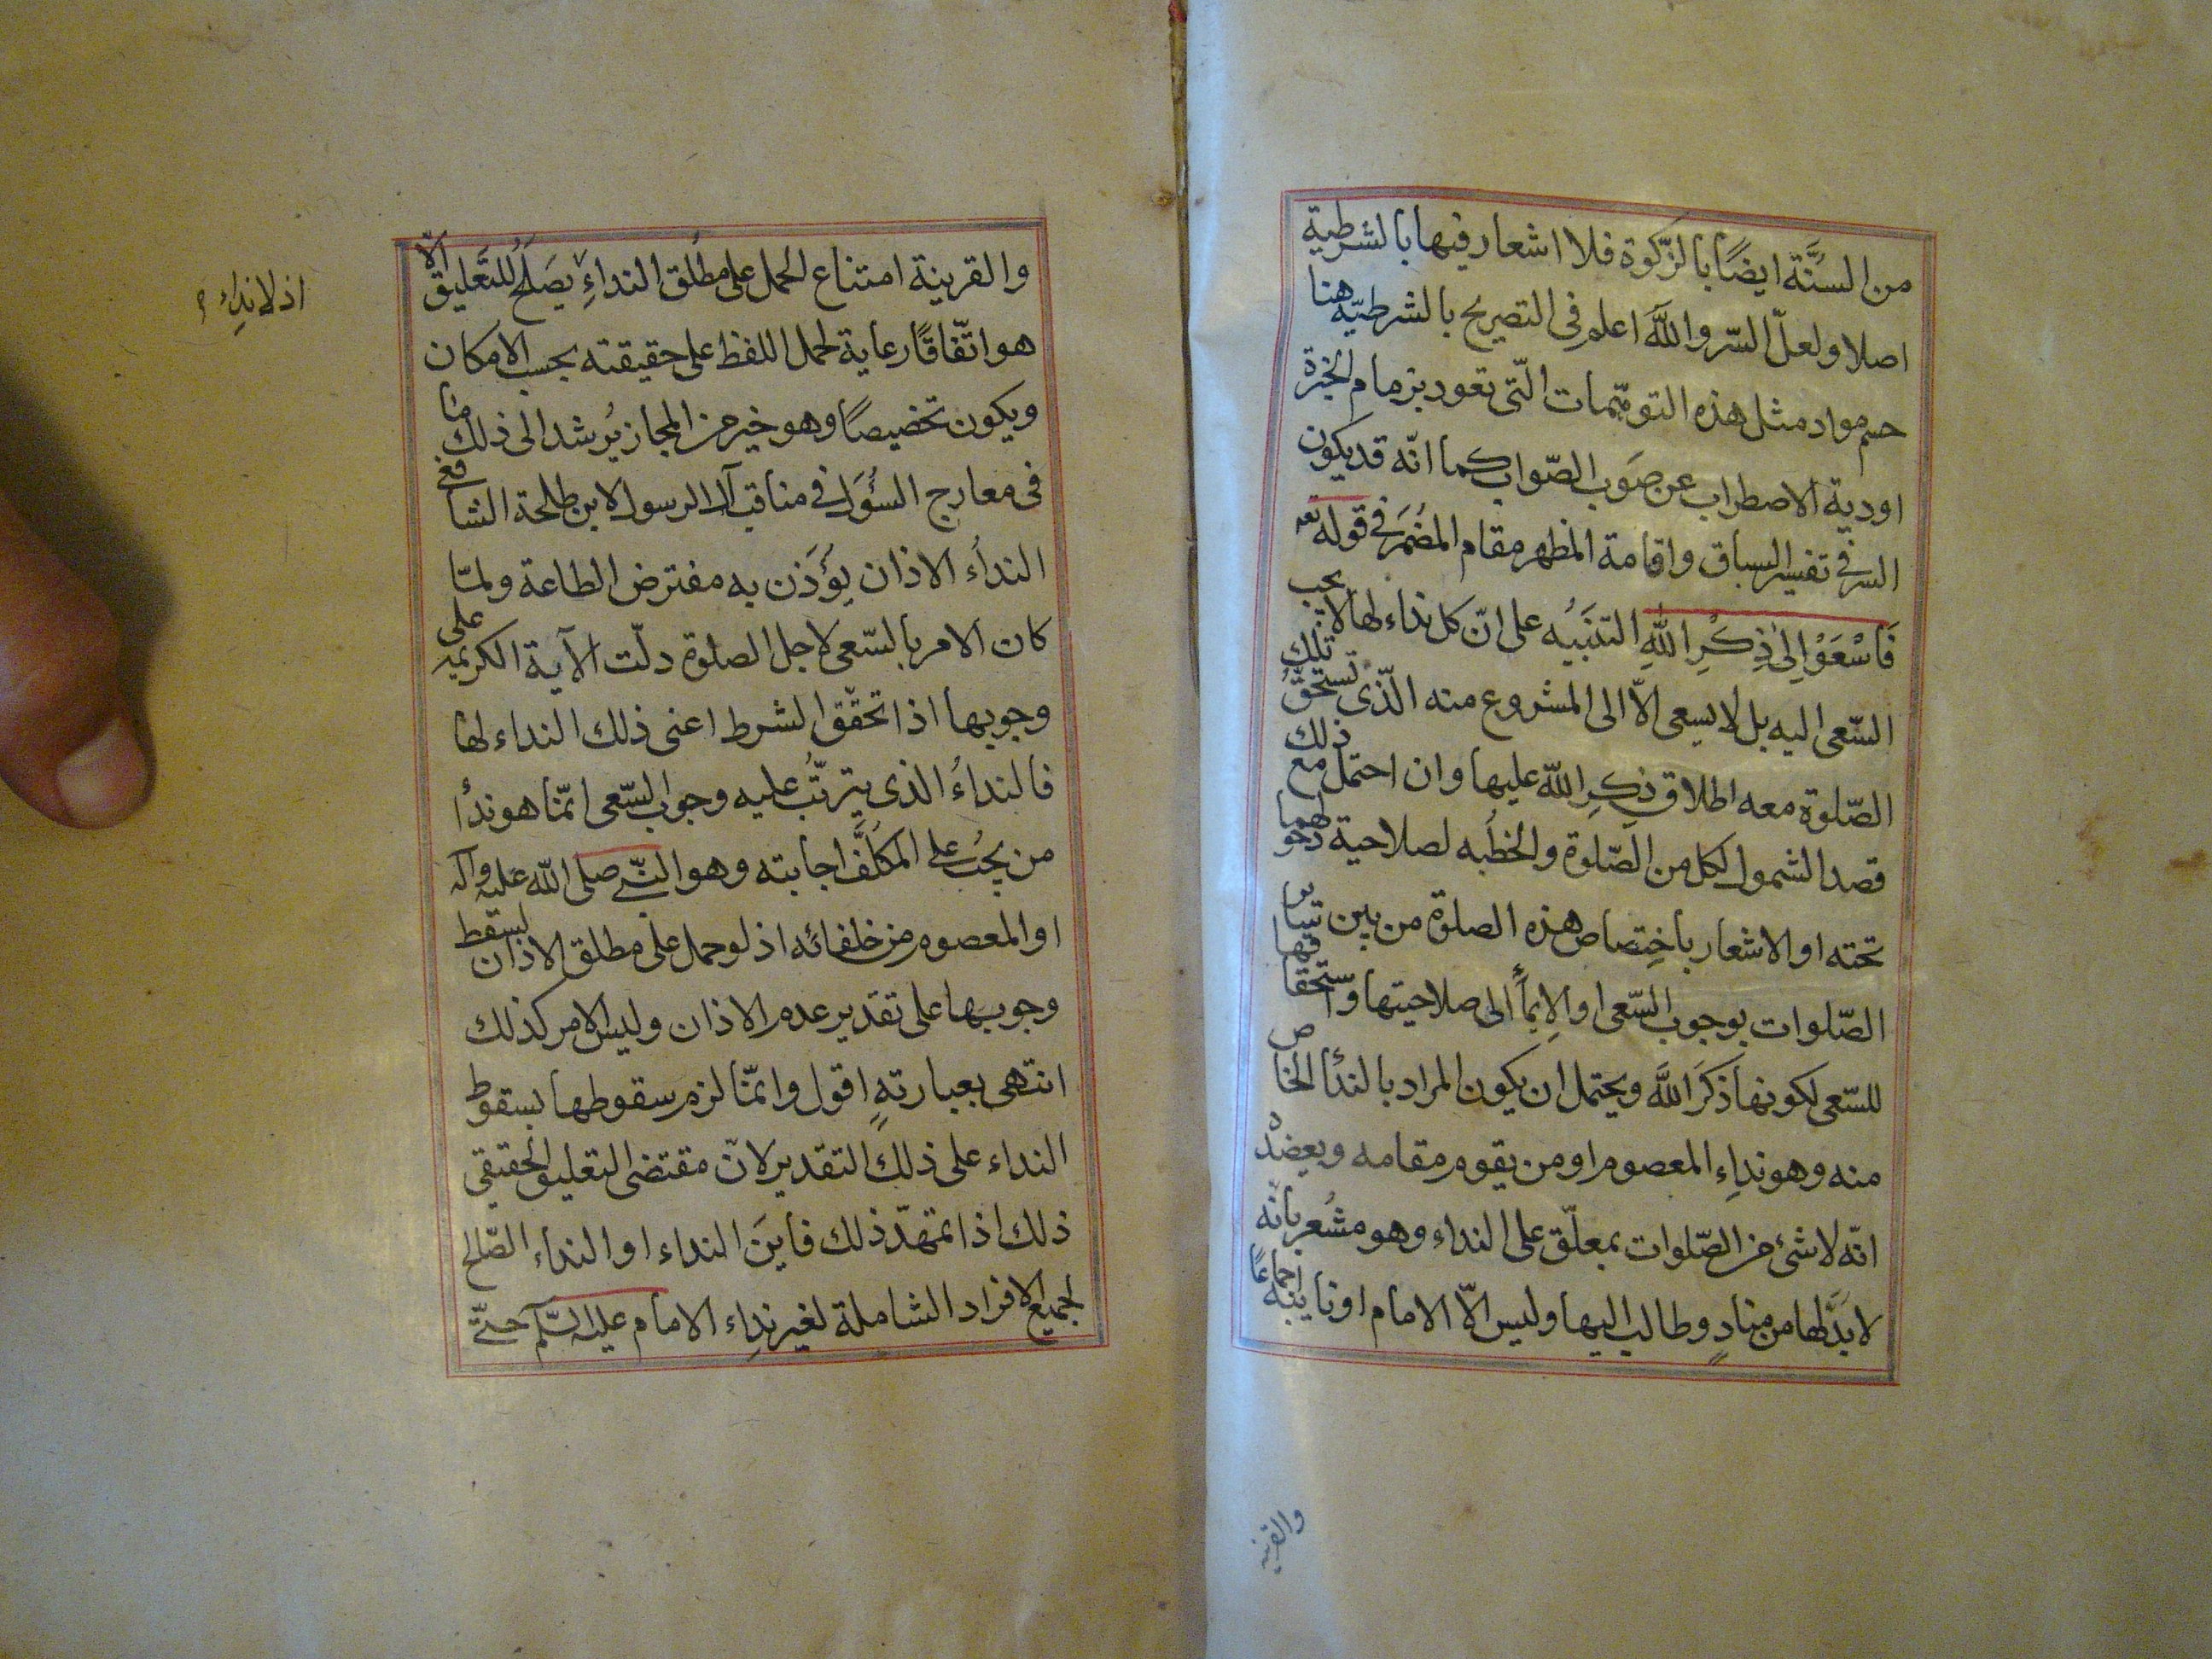 من السنّة ايضًا بالزكوة فلا اشعار فيها بالشرطية
اصلا ولعلّ السّر واللّه اعلم فى التصريح بالشرطيّه هنا
حسم مواد مثل هذه التوهّمات الّتى تعود بزمام الخيرة
اودية الاضطراب عن صَوب الصّواب كما انّه قد يكون
السر فى تفسير السباق واقامة المظهر مقام المُضمَر فى قوله تعه
فَاسْعَوْا اِلىٰ ذِكْرِ اللّٰهِ التنبيُه على انّ كل نداء لها لا يجب
السّعى اليه بل لا يسعى الّا الى المشروع منه الّذى تستحقّ تلك
الصّلوة معه اطلاق ذِكِر اللّه عليها وان احتمل مع ذلك
قصد الشمول لكل من الصّلوة والخطُبه لصلاحية دخولهما
تحته او الاشعار باخِتصاص هذه الصلوة من بين ساير
الصّلوات بوجوب السّعى او الاِيمأ الى صلاحيتها واستحقاقها
للسّعى لكونها ذكرَ اللّه ويحتمل ان يكون المراد بالندأ الخاص
منه وهو نداءِ المعصوم او من يقوم مقامه ويعضدُه
انّه لا شئ من الصّلوات بمعلّق على النداء وهو مشُعر بانّه
لا بدَّ لها من منادٍ وطالب اليها وليس الّا الامام او نايبه اجماعًا
والقرينه
والقرينة امتناع الحمل على مطلق النداءِ يصَلح للتَّعليق الّا
هو اتّفاقًا رعاية لحمل اللفظ على حقيقته بحسب الامكان
ويكون تخصيصًا وهو خير من المجاز يُرشد الى ذلك ما
فى معارج السؤَل فى مناقب آل الرسول لابن طلحة الشافعى
النداُء الاذان يؤَذن به مفترض الطاعة ولمّا
كان الامر بالسّعى لاجل الصلوة دلّت الآية الكريمه على
وجوبها اذا تحقّق الشرط اعنى ذلك النداء لها
فالنداُء الذى يترتّبُ عليه وجوب السّعى انمّا هو ندأ
من يجُب على المكلَّف اجابته وهو النبّى صلى اللّه عليه وآله
او المعصوم من خلفائه اذ لو حمل على مطلق الاذان لسقط
وجوبها على تقدير عدم الاذان وليس الامر كذلك
انتهى بعبارتهِ اقول وانمّا لزم سقوطها بسقوط
النداء على ذلك التقدير لانّ مقتضى التعليق الحقيقى
ذلك اذا تمهّد ذلك فاينَ النداء او النداء الصّالح
لجميع الافراد الشاملة لغير نداِء الامام عليه السّلم حتّى
اذ لا نداِء